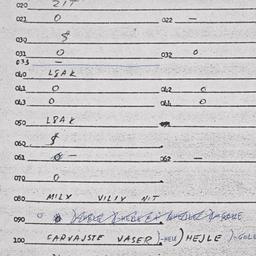 020 ZIT
021 0 022 —
030 $
031 0 032 0
033 —
040 LSAK
041 0 042 0
043 0 044 0
050 LSAK
060 $
061 — 062 —
070 0
080 MILY VILIY NIT
090
100 CARVAJSTE VASER )-MEU) HEJLE )-GOLE